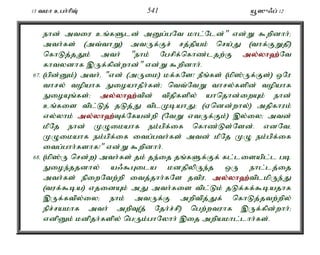 13 வமா உபர்ரிஉ 541 யூஸுஃப் 12
நான் அவரை உங்களுடன் அனுப்பவே மாட்டேன்" என்று கூறினார்;
அவர்கள் (அவ்வாறு) அவருக்குச் சத்தியம் செய்து (வாக்குறுதி)
கொடுத்ததும் அவர் "நாம் பேசிக்கொண்டதற்கு அல்லாஹ்வே
காவலனாக இருக்கின்றான்" என்று கூறினார்.
67. (பின்னும்) அவர், "என் (அருமை) மக்களே! நீங்கள் (மிஸ்ருக்குள்) ஒரே
வாசல் வழியாக நுழையாதீர்கள்; வெவ்வேறு வாசல்களின் வழியாக
நுழையுங்கள்; அல்லாஹ்வின் விதிகளில் யாதொன்றையும் நான்
உங்களை விட்டுத் தடுத்து விடமுடியாது; (ஏனென்றால்) அதிகாரம்
எல்லாம் அல்லாஹ்வுக்கேயன்றி (வேறு எவருக்கும்) இல்லை; அவன்
மீதே நான் முழுமையாக நம்பிக்கை கொண்டுள்ளேன். எனவே,
முழுமையாக நம்பிக்கை வைப்பவர்கள் அவன் மீதே முழு நம்பிக்கை
வைப்பார்களாக!" என்று கூறினார்.
68. (மிஸ்ரு சென்ற) அவர்கள் தம் தந்தை தங்களுக்குக் கட்டளையிட்ட படி
நுழைந்ததனால் யஃகூபுடைய மனதிலிருந்த ஒரு நாட்டத்தை
அவர்கள் நிறைவேற்றி வைத்தார்களே தவிர, அல்லாஹ்விடமிருந்து
(வரக்கூடிய) எதனையும் அது அவர்களை விட்டும் தடுக்கக்கூடியதாக
இருக்கவில்லை; நாம் அவருக்கு அறிவித்துக் கொடுத்தவற்றில்
நிச்சயமாக அவர் அறிவு(த் தேர்ச்சி) பெற்றவராக இருக்கின்றார்;
எனினும் மனிதர்களில் பெரும்பாலோர் இதை அறியமாட்டார்கள்.